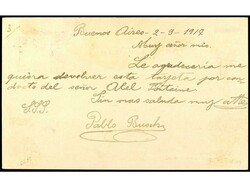 3/
Buenos Aires - 2-9-1918
Muy sr. mio.
Le agradeceria me
quiera devolver esta tarjeta por con
ducto del señor Abel Fontaine
Sin mas saluda muy atte
S.S.S.
Pablo